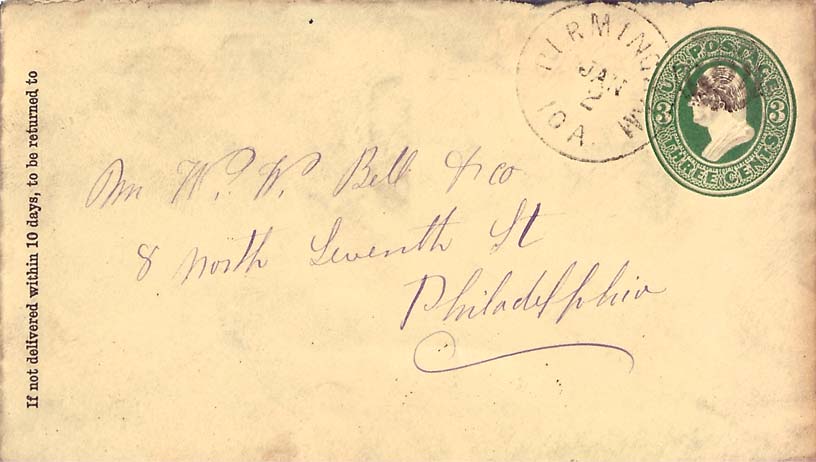 If not delivered within 10 days, to be returned to
BIRMING
JAN
2
10 A.M
U.S. POSTAGE
3 3
THREE CENTS
W. W. Bell & Co
8 North Seventh St
Philadelphia